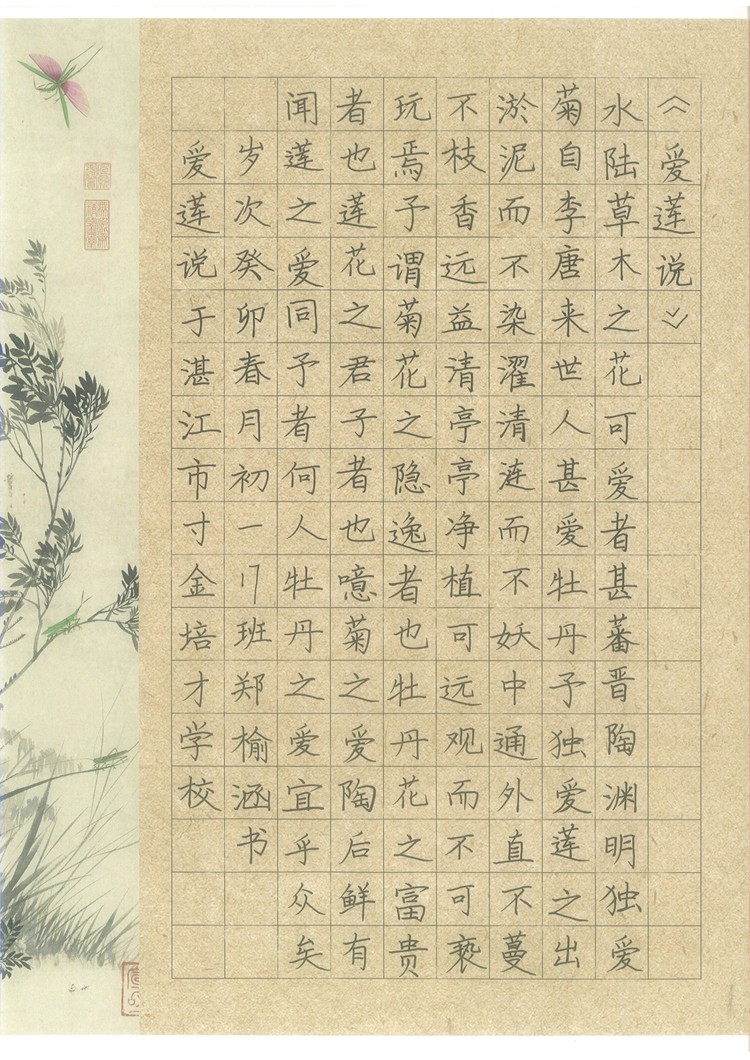 《爱莲说》
水陆草木之花可爱者甚蕃晋陶渊明独爱
菊自李唐来世人甚爱牡丹予独爱莲之出
淤泥而不染濯清涟而不妖中通外直不蔓
不枝香远益清亭亭净植可远观而不可亵
玩焉予谓菊花之隐逸者也牡丹花之富贵
者也莲花之君子者也噫菊之爱陶后鲜有
闻莲之爱同予者何人牡丹之爱宜乎众矣
岁次癸卯春月初一17班郑榆涵书
爱莲说于湛江市寸金培才学校